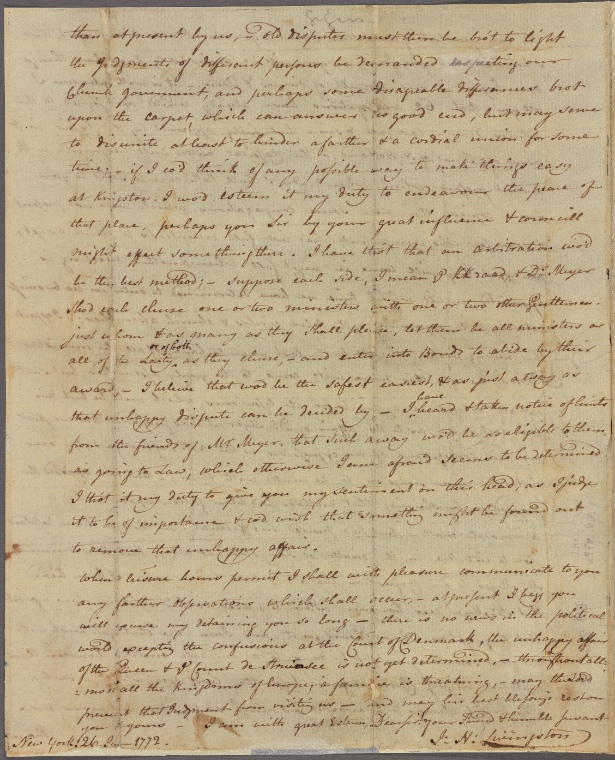 than at present by us, — old disputes must then be bro't to light
the Judgments of different persons be demanded respecting our
Church government, and perhaps some disagreable differences brot
upon the carpet, which can answer no good end, but may serve
to disunite at least to hinder a farther & a cordial union for some
time; - if I cod think of any possible way to make things easy
at Kingston. I wod esteem it my duty to endeavour the peace of
that place, perhaps you Sir by your great influence & councill
might effect something there. I have thot that an arbitration wod
be the best method; - suppose each side, I mean & Dr. Meyer
Shod each chuse one or two ministers with one or two other Gentlemen.
just whom & as many as they Shall please, let them be all ministers or
all of the Laity or of both as they chuse, - and enter into Bonds to abide by their
award, - I believe that wod be the safest easiest, & as just a way as
that unhappy dispute can be decided by - I have heard & taken notice of hints
from the friends of Mr. Meyer, that such a way wod be as eligible to them
as going to Law, which otherwise I am afraid seems to be determined
I thot it my duty to give you my sentiment on this head, as I judge
it to be of importance & cod wish that something might be found out
to remove that unhappy affair.
When leisure hours permit I shall with pleasure communicate to you
any farther observations which shall occur, - at present I beg you
will excuse my detaining you so long - there is no news in the political
world excepting the confusions at the Court of Denmark, the unhappy affair
of the Queen & Count de Struensee is not yet determined, - throughout all-
: most all the Kingdoms of Europe, a famine is threatning, - may the Lord
prevent that Judgment from visiting us - and may his best blessings rest on
you & yours - I am with great Esteem, Dear Sir, your Friend & humble servant
J: H: Livingston
New York 26 1772.